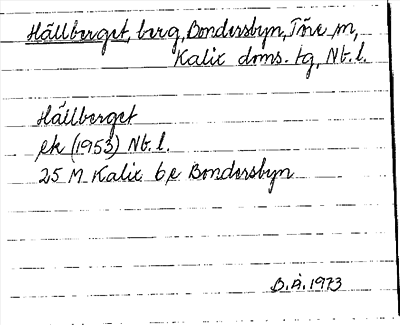 Hällberget, berg, Bondersbyn, Töre sn,
Kalix doms. tg, Nb. l.
Hällberget
ek (1953) Nb. l.
25 M Kalix 6 e Bondersbyn
B.Å. 1973